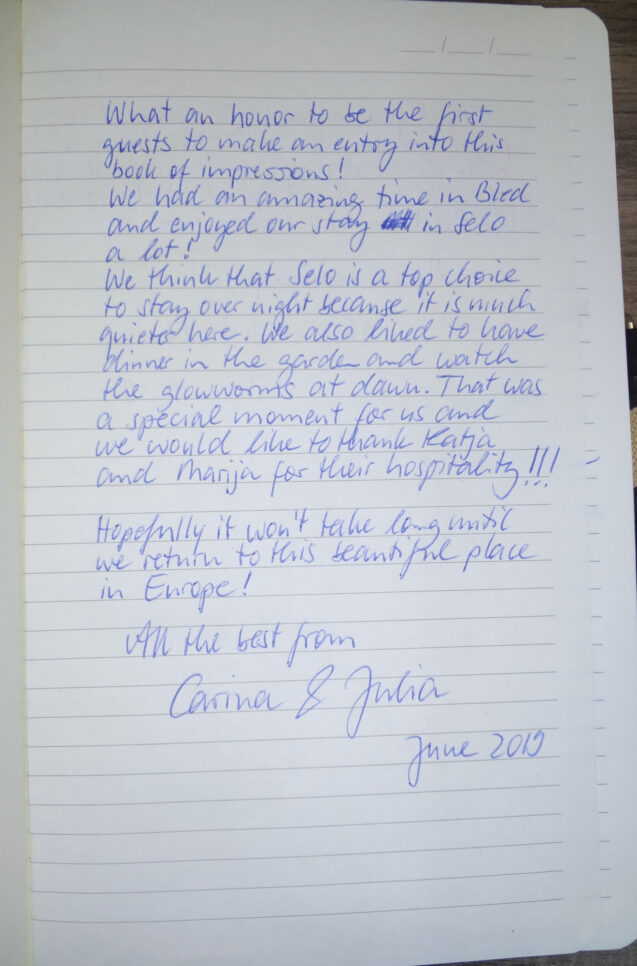 __/__/__
What an honor to be the first
guests to make an entry into this
book of impressions!
We had an amazing time in Bled
and enjoyed our stay in Selo
a lot!
We think that Selo is a top choice
to stay over night because it is much
quieter here. We also liked to have
dinner in the garden and watch
the glowworms at dawn. That was
a special moment for us and
we would like to thank Katja
and Marija for their hospitality!!!
Hopefully it won't take long until
we return to this beautiful place
in Europe!
All the best from
Carina & Julia
June 2019